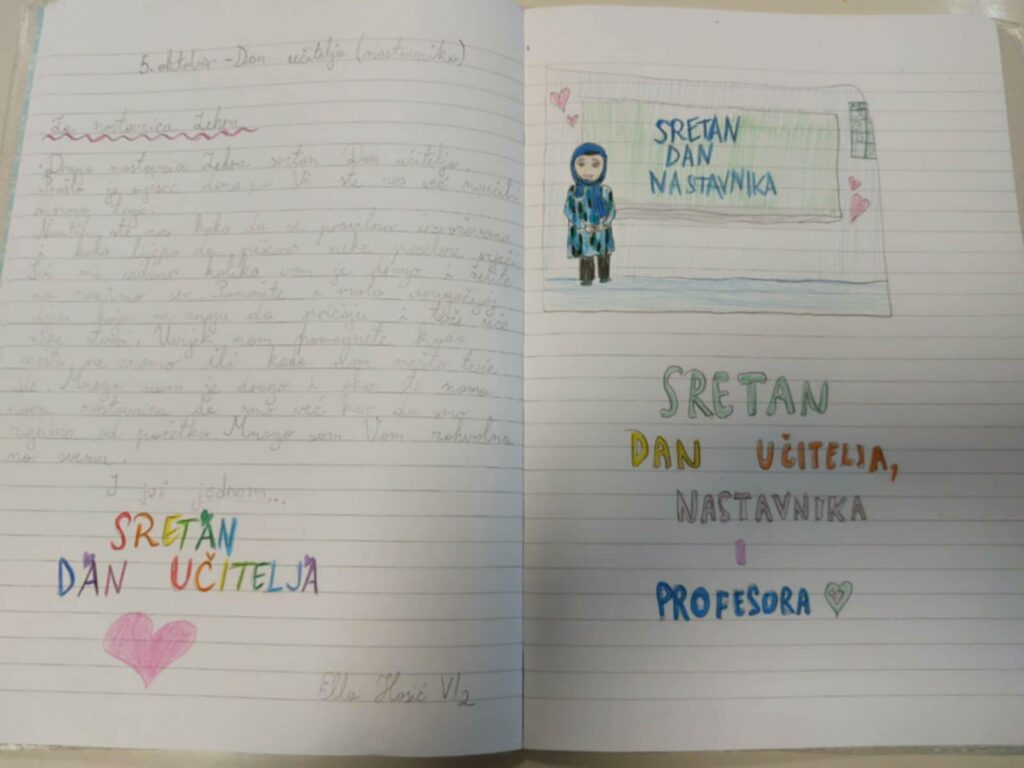 5. oktobar - Dan učitelja (nastavnika)
Za nastavnicu Zehru
Draga nastavnice Zehra, sretan Dan učitelja.
Prošlo je mjesec dana, a Vi ste nas već naučili
mnogo toga.
Naučili ste nas kako da se pravilno izražavamo
i kako lijepo da pišemo neke početne riječi.
Svi mi vidimo koliko vam je drago i želite
da naučimo sve. Pomozite i malo drugačijoj
djeci koja ne znaju da pričaju i teže uče
stvari. Uvijek nam pomognete kada
nešto ne znamo ili kada nam nešto teže
ide. Mnogo nam je drago i ako ste nama
nova nastavnica da smo već kao da smo
zajedno od početka. Mnogo sam Vam zahvalna
na svemu.
I još jednom...
SRETAN
DAN UČITELJA
Ella Hosić VI2
SRETAN
DAN
NASTAVNIKA
SRETAN
DAN UČITELJA,
NASTAVNIKA
I
PROFESORA